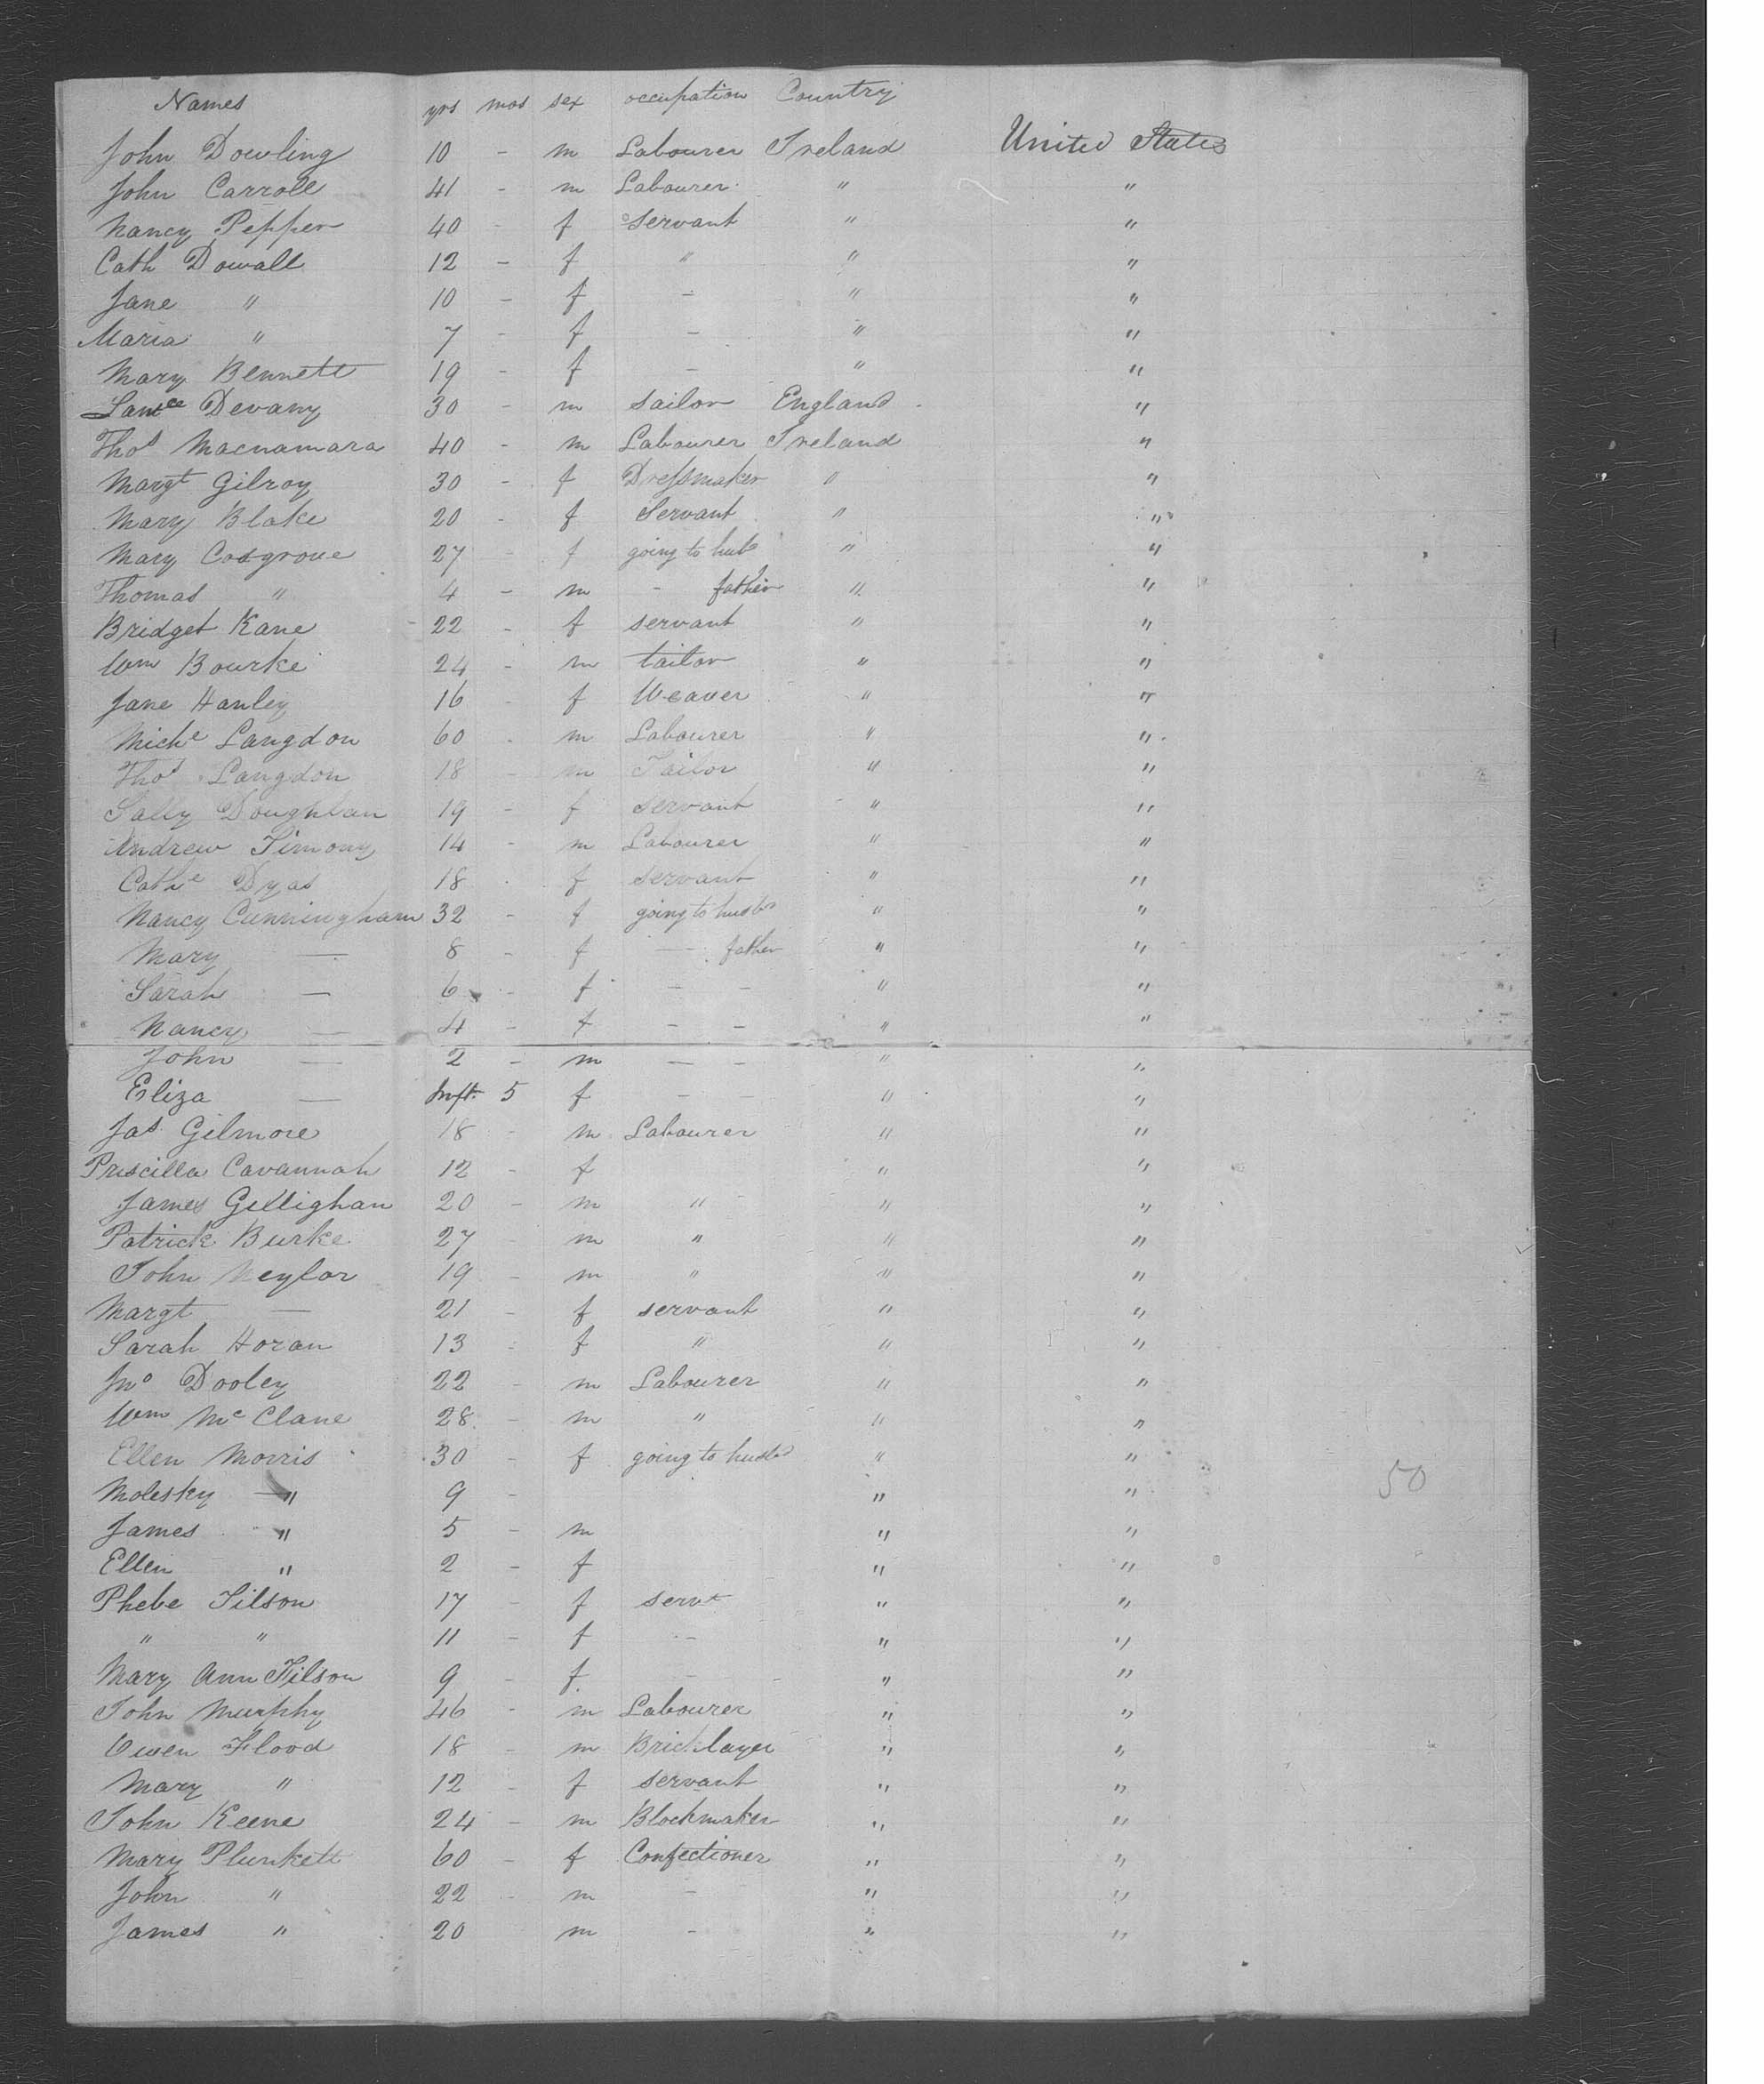 Names yrs mos sex occupation Country
John Dowling 10 - m Labourer Ireland United States
John Carroll 41 - m Labourer " "
Nancy Pepper 40 - f Servant " "
Cath Dowall 12 - f " " "
Jane " 10 - f - " "
Maria " 7 - f - " "
Mary Bennett 19 - f - " "
Lawce Devany 30 - m sailor England "
Thos Macnamara 40 - m Labourer Ireland "
Margt Gilroy 30 - f Dressmaker " "
Mary Blake 20 - f Servant " "
Mary Cosgrove 27 - f going to husb " "
Thomas " 4 - m - father " "
Bridget Kane 22 - f servant " "
Wm Bourke 24 - m tailor " "
Jane Hanley 16 f Weaver " "
Miche Langdon 60 - m Labourer " "
Thos Langdon 18 - m Tailor " "
Sally Doughlan 19 - f servant " "
Andrew Timony 14 - m Labourer " "
Cathe Dyas 18 - f servant " "
Nancy Cunningham 32 - f going to husb " "
Mary — 8 - f — father " "
Sarah — 6 - f - - " "
Nancy — 4 - f - - " "
John — 2 - m - - " "
Eliza — Inft. 5 f - - " "
Jas Gilmore 18 - m Labourer " "
Priscilla Cavannah 12 - f " "
James Gillighan 20 - m " " "
Patrick Burke 27 - m " " "
John Neylor 19 - m " " "
Margt — 21 - f servant " "
Sarah Horan 13 - f " " "
Jno Dooley 22 - m Labourer " "
Wm McClane 28 - m " " "
Ellen Morris 30 - f going to husbd " "
Molesky " 9 - " " 50
James " 5 - m " "
Ellen " 2 - f " "
Phebe Tilson 17 - f servt " "
" " 11 - f - " "
Mary Ann Tilson 9 - f - " "
John Murphy 46 - m Labourer " "
Owen Flood 18 - m Bricklayer " "
Mary " 12 - f servant " "
John Keene 24 - m Blockmaker " "
Mary Plunkett 60 - f Confectioner " "
John " 22 - m - " "
James " 20 m - " "